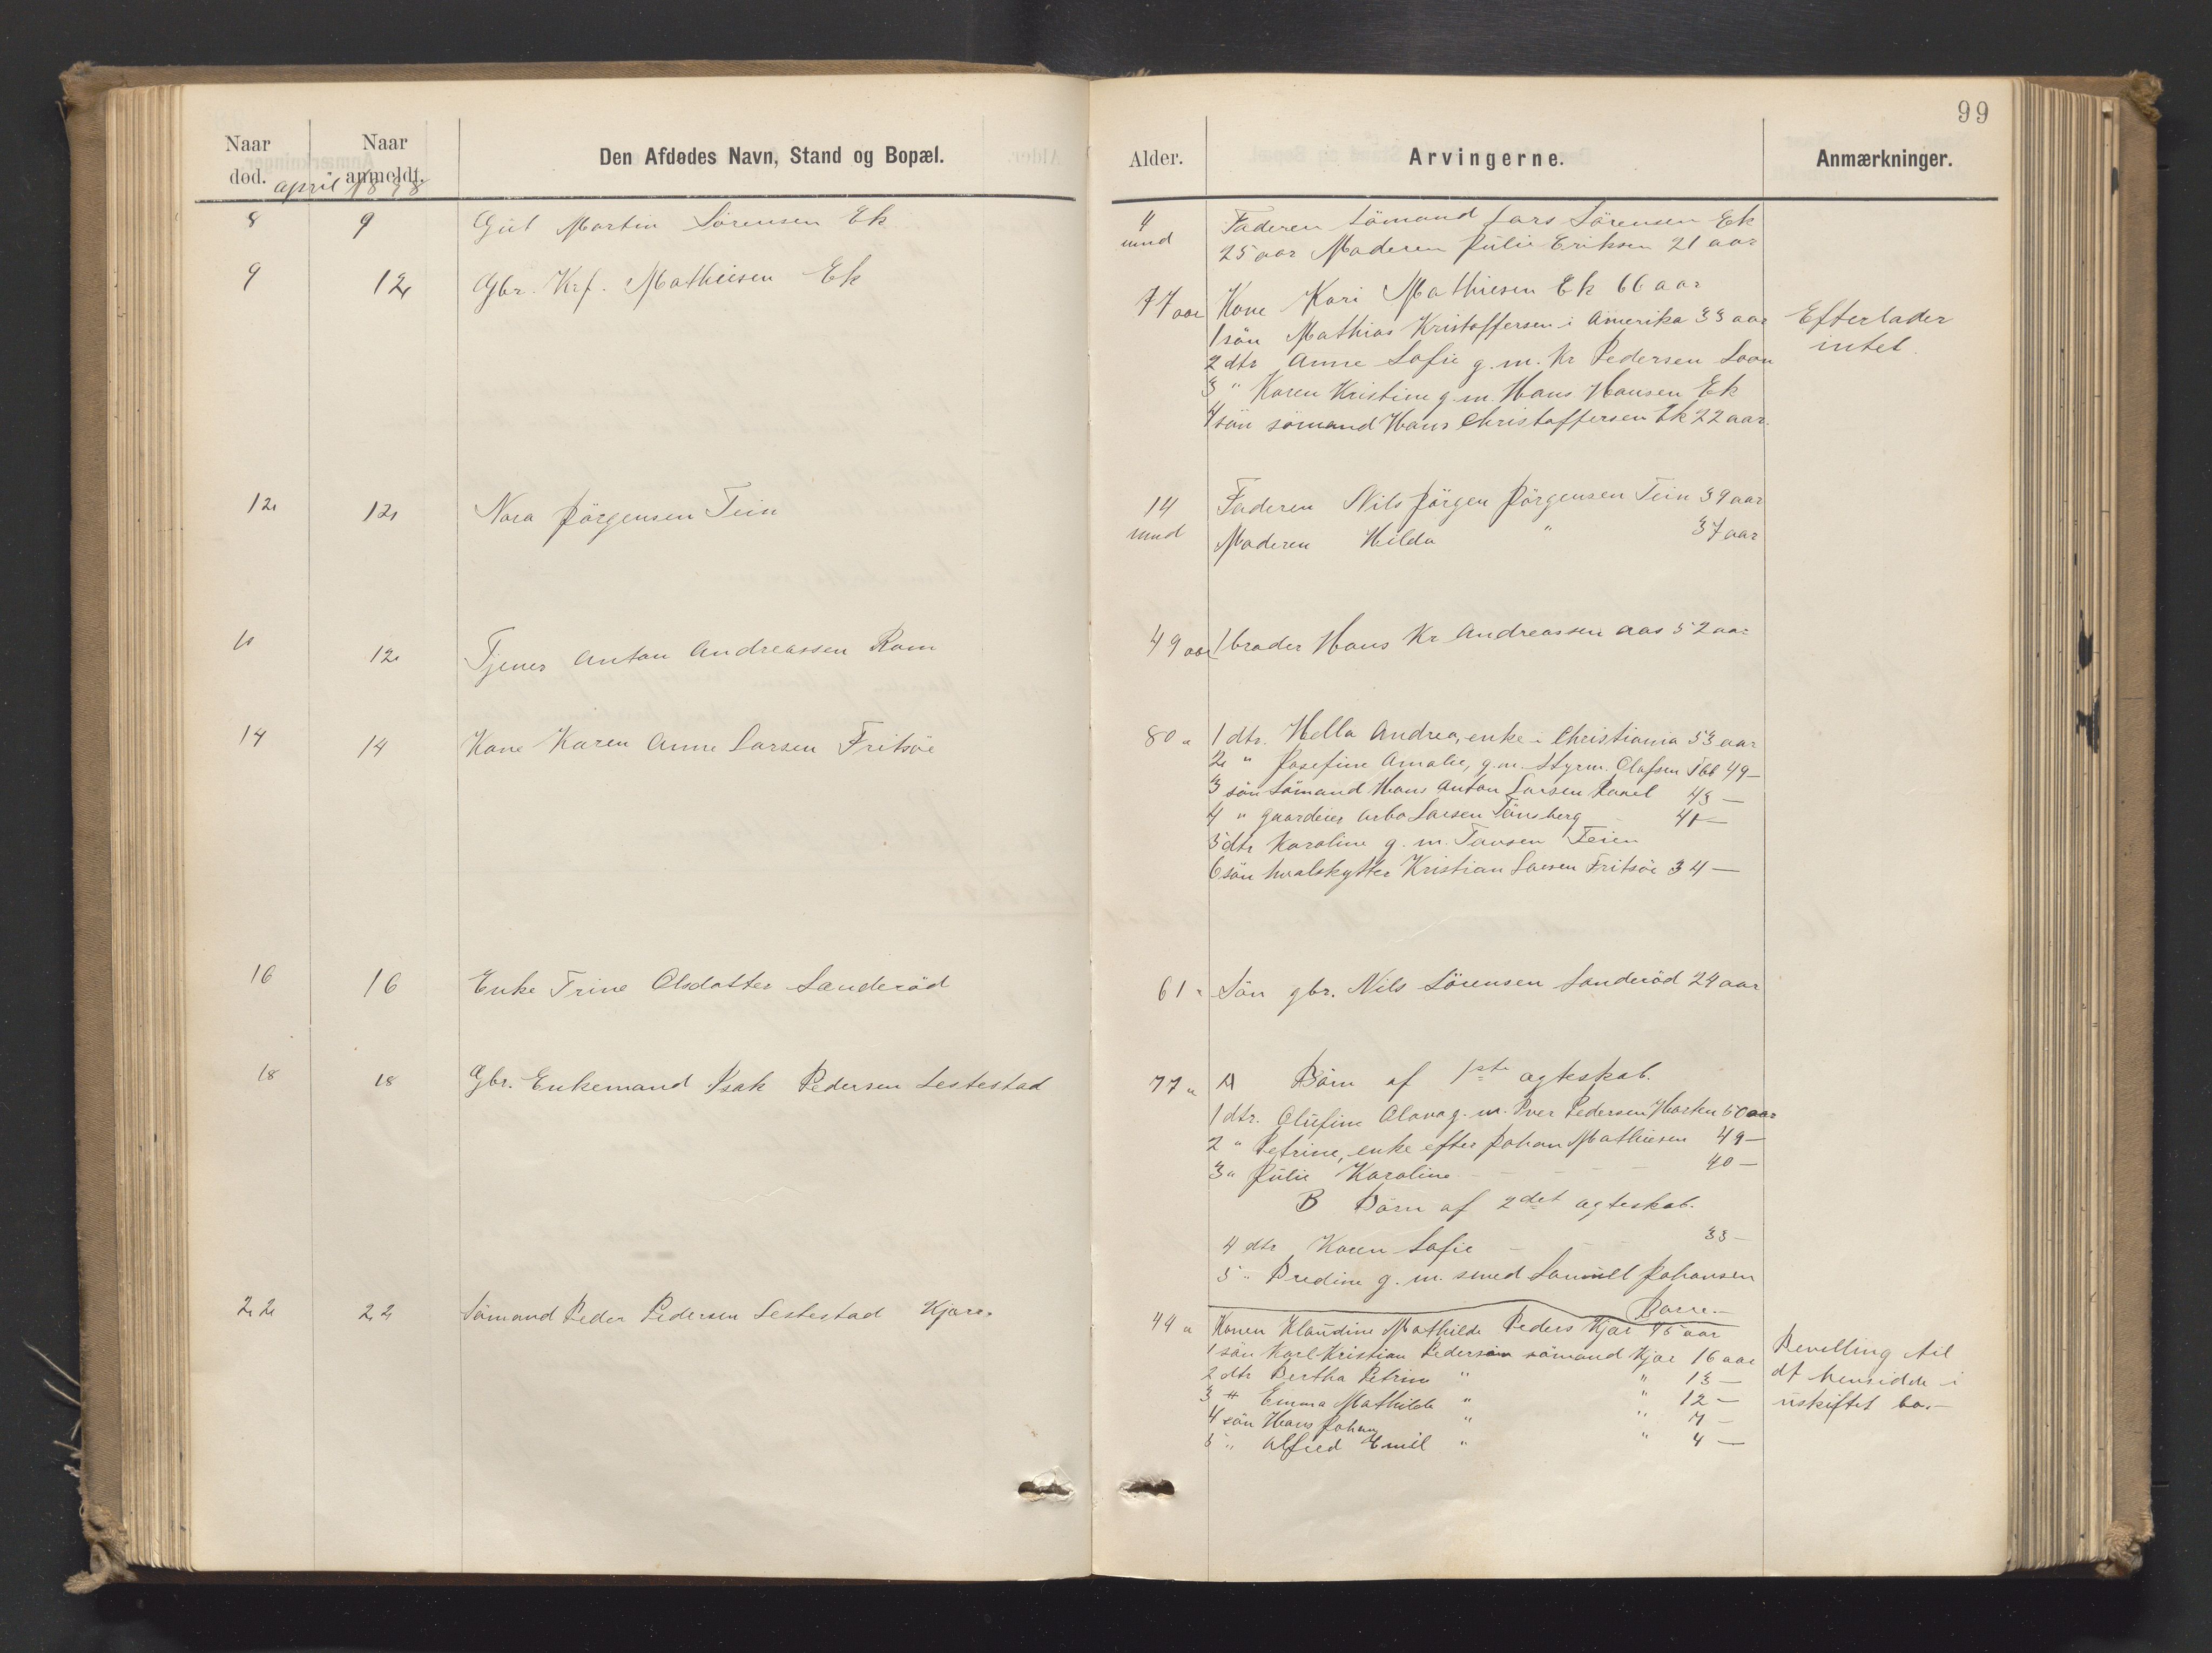 99
Naar død. Naar anmeldt. Den Afdødes Navn, Stand og Bopæl. Alder. Arvingerne. Anmærkninger.
april 1898
8 9 Gut Martin Sörensen Ek 4 mnd Faderen Sömand Lars Sörensen Ek
25 aar Moderen Julie Eriksen 21 aar
9 12 Gbr. Krf. Mathiesen Ek 77 aar Kone Kari Mathiesen Ek 66 aar
1 sön Mathias Kristoffersen i Amerika 33 aar Efterlader
2 dtr Anne Sofie g. m. Kr Pedersen intet
3 " Karen Kristine g. m. Hans Hansen Ek
4 sön sömand Hans Christoffersen Ek 22 aar.
12 12 Nora Jörgensen Tein 14 mnd Faderen Nils Jörgen Jörgensen Tein 39 aar
Moderen Hilda " 37 aar
10 12 Tjener Anton Andreassen Ram 49 aar 1 broder Hans Kr Andreassen Aas 52 aar
14 14 Kone Karen Anne Larsen Fritsöe 80 " 1 dtr. Hella Andrea, enke i Christiania 53 aar
2 " Josefine Amalie, g. m. Styrm. Olafsen Tbb 49 —
3 sön Sömand Hans Anton Larsen 43 —
4 " gaardeier Arbo Larsen Tönsberg 41 —
5 dtr Karoline g. m. Tausen Teien
6 sön hvalskytter Kristian Larsen Fritsöe 34 —
16 16 Enke Trine Olsdatter Sanderöd 61 " Sön gbr. Nils Sörensen Sanderöd 24 aar
18 18 Gbr. Enkemand Isak Pedersen Lestestad 77 " A Börn af 1ste ægteskab.
1 dtr. Olufine Olava g. m. Iver Pedersen 50 aar
2 " Petrine, enke efter Johan Mathiesen 49 —
3 " Julie Karoline — — — — 40 —
B Börn af 2det ægteskab.
4 dtr Karen Sofie — — — 33 —
5 " Bredine g. m. smed Samuel Johansen
Borre. —
22 22 Sömand Peder Pedersen Lestestad Kjær. 44 " Konen Klaudine Mathilde Peders Kjær 45 aar
1 sön Karl Kristian Pedersen sömand Kjær 16 aar Bevilling til
2 dtr Bertha Petrine " " 13 — at hensidde i
3 " Emma Mathilde " " 12 — uskiftet bo. —
4 sön Hans Johan " " 7 —
5 " Alfred Emil " " 4 —